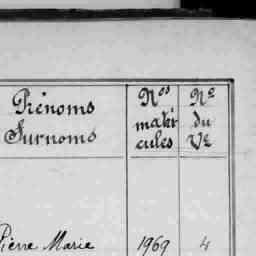 Prénoms
Surnoms
Nos
matri
cules
No
du
Vé
Pierre Marie 1969 4